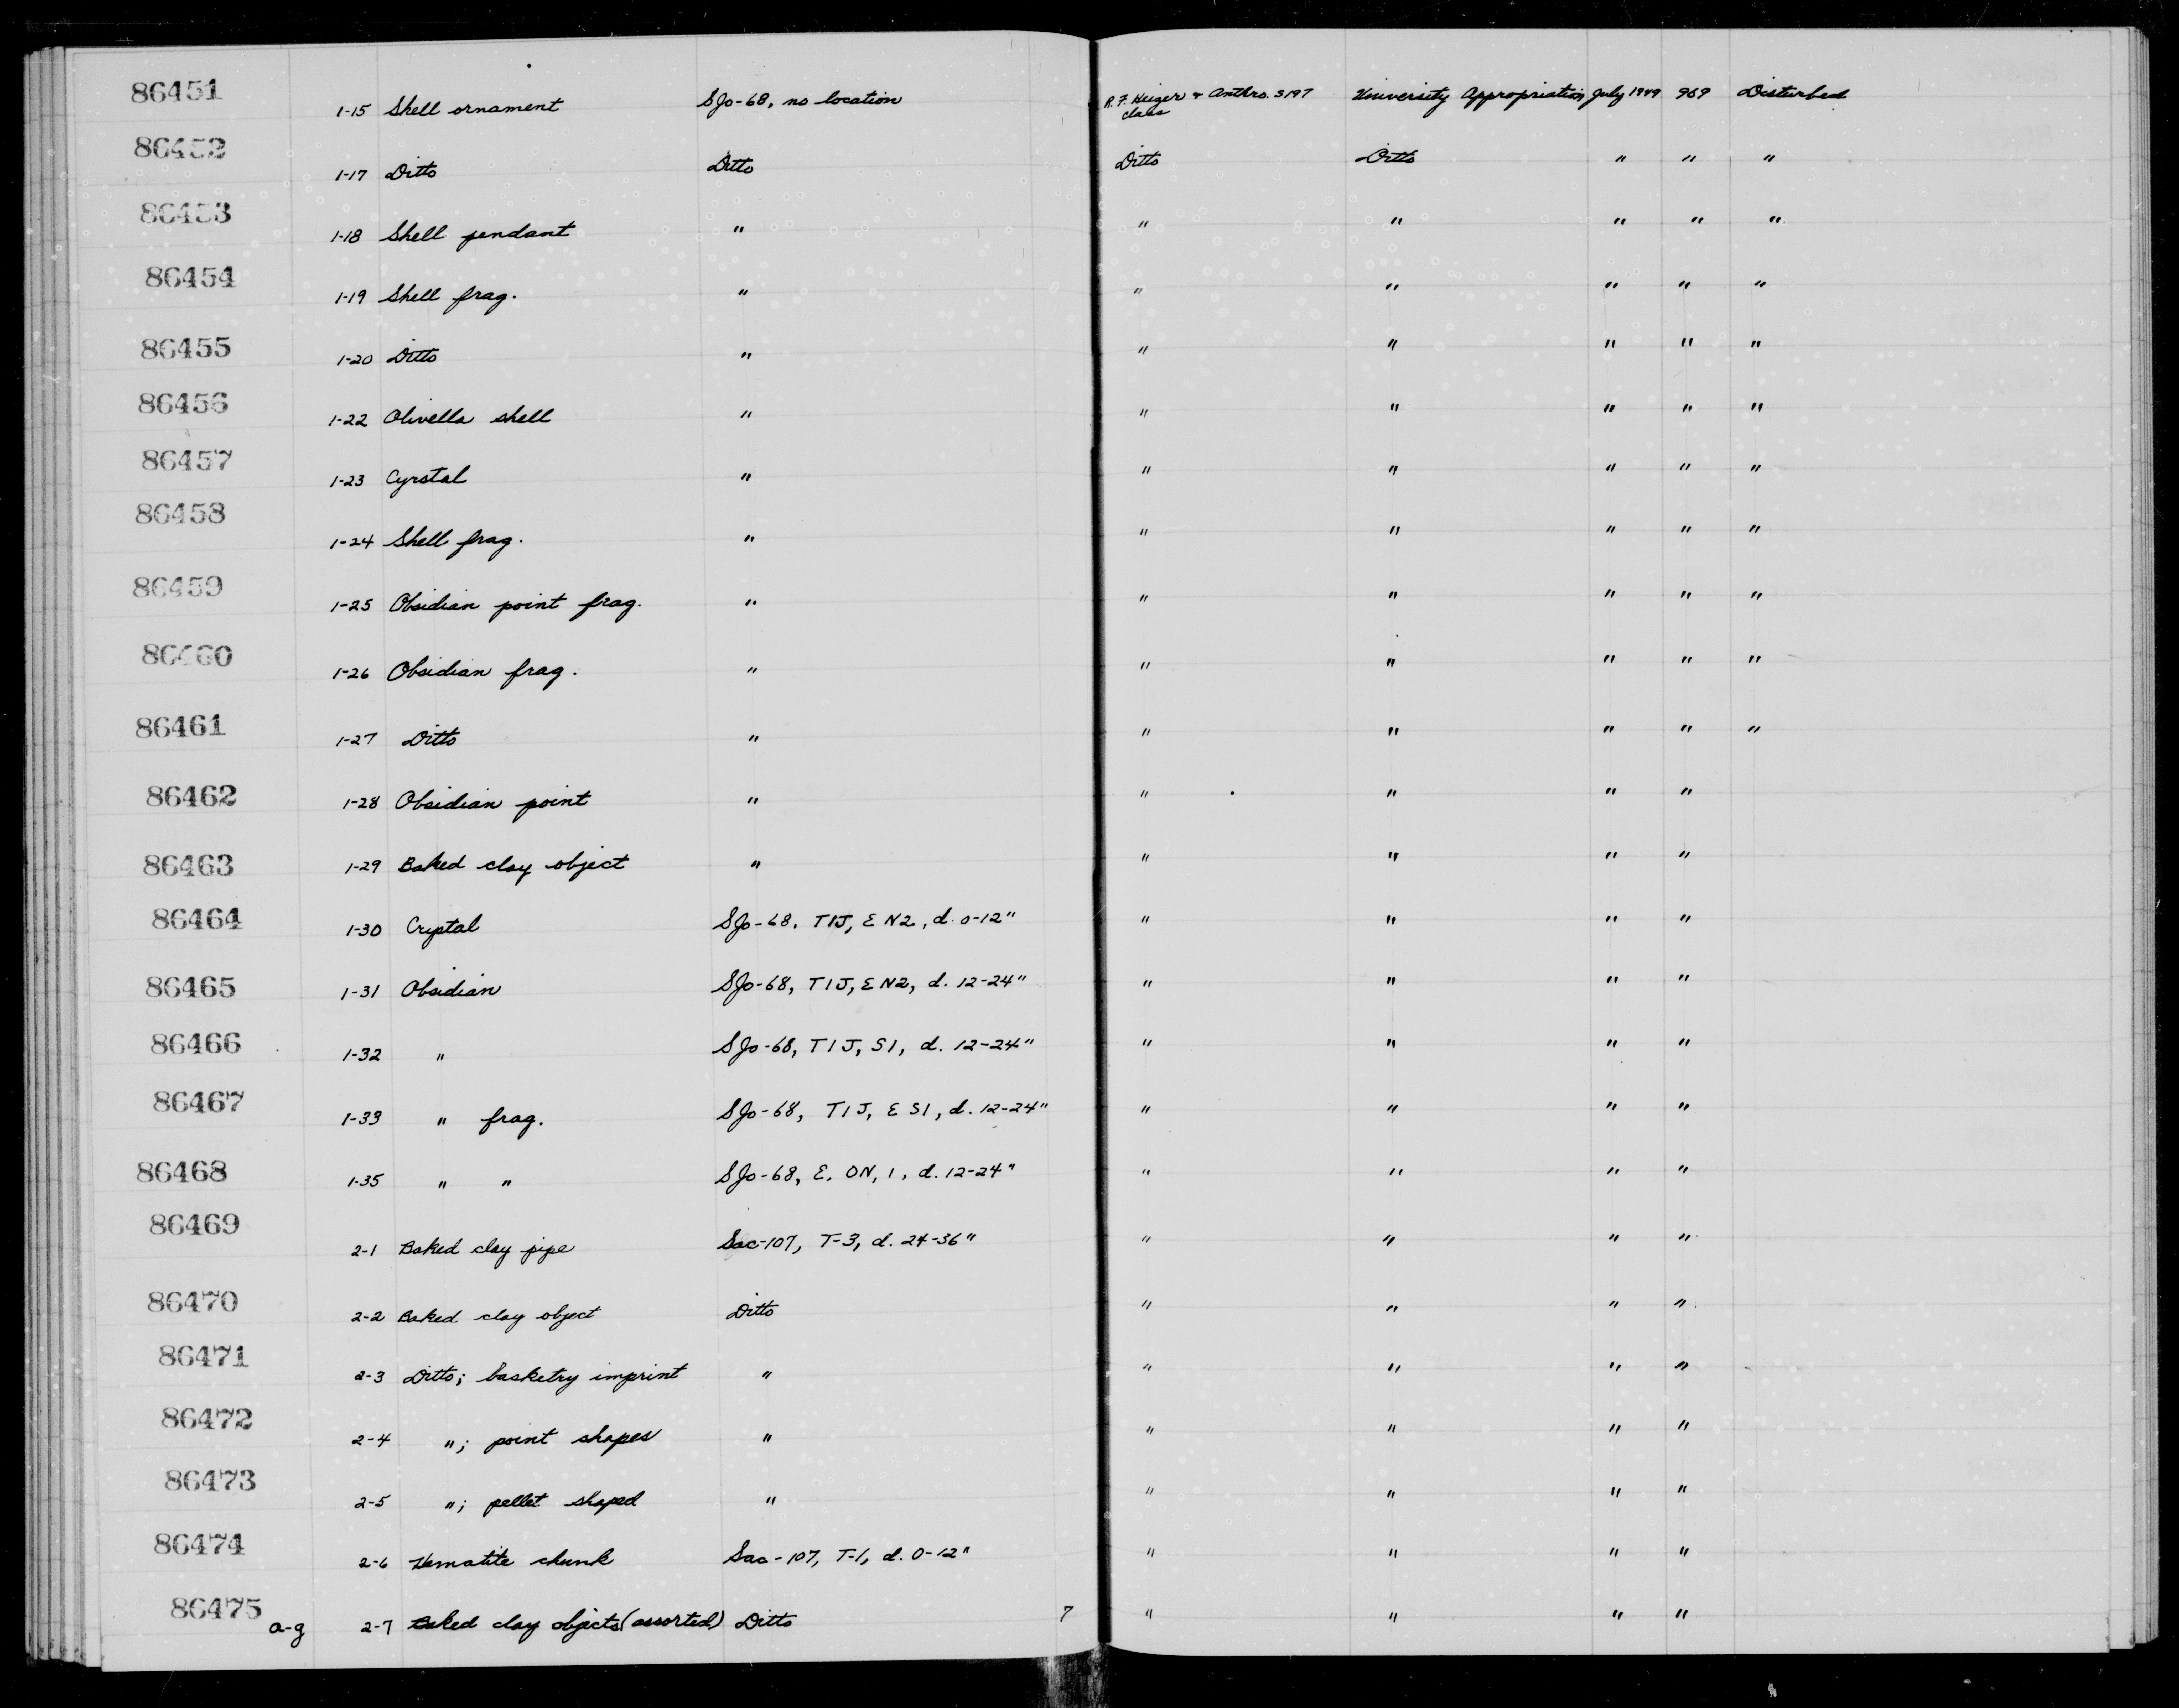 86451 1-15 Shell ornament SJo-68, no location R. F. Heizer + Anthro. S197 class University Appropriation July 1949 969 Disturbed
86452 1-17 Ditto Ditto Ditto Ditto " " "
86453 1-18 Shell pendant " " " " " "
86454 1-19 Shell frag. " " " " " "
86455 1-20 Ditto " " " " " "
86456 1-22 Olivella shell " " " " " "
86457 1-23 Cyrstal " " " " " "
86458 1-24 Shell frag. " " " " " "
86459 1-25 Obsidian point frag. " " " " " "
86460 1-26 Obsidian frag. " " " " " "
86461 1-27 Ditto " " " " " "
86462 1-28 Obsidian point " " " " "
86463 1-29 Baked clay object " " " " "
86464 1-30 Crystal SJo-68, T1J, E N2, d. 0-12" " " " "
86465 1-31 Obsidian SJo-68, T1J, E N2, d. 12-24" " " " "
86466 1-32 " SJo-68, T1J, S1, d. 12-24" " " " "
86467 1-33 " frag. SJo-68, T1J, E S1, d. 12-24" " " " "
86468 1-35 " " SJo-68, E. ON, 1, d. 12-24" " " " "
86469 2-1 Baked clay pipe Sac-107, T-3, d. 24-36" " " " "
86470 2-2 Baked clay object Ditto " " " "
86471 2-3 Ditto; basketry imprint " " " " "
86472 2-4 "; point shapes " " " " "
86473 2-5 "; pellet shaped " " " " "
86474 2-6 Hematite chunk Sac-107, T-1, d. 0-12" " " " "
86475 a-g 2-7 Baked clay objects (assorted) Ditto 7 " " " "